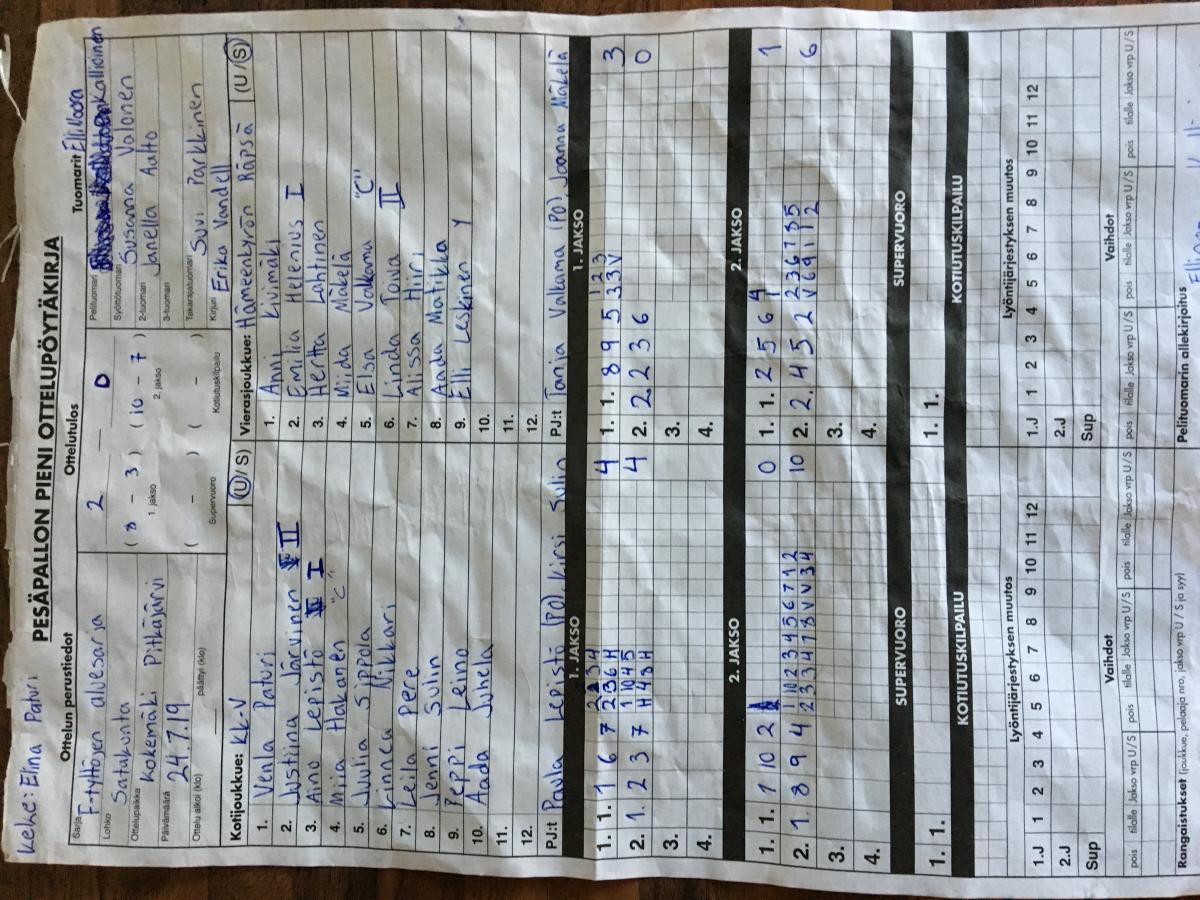 Kekke: Elina Paturi
PESÄPALLON PIENI OTTELUPÖYTÄKIRJA
Ottelun perustiedot
Ottelutulos
Tuomarit
Sarja
F-tyttöjen aluesarja
2 — 0
Pelituomari
Kallioinen
Lohko
Satakunta
( 8 - 3 ) ( 10 - 7 )
1. jakso
2. jakso
Syöttötuomari
Susanna Valonen
Ottelupaikka
Kokemäki Pitkäjärvi
2-tuomari
Janella Aalto
3-tuomari
Päivämäärä
24.7.19
( - ) ( - )
Supervuoro
Kotiutuskilpailu
Takarajatuomari
Suvi Parkkinen
Ottelu alkoi (klo)
päättyi (klo)
Kirjuri
Erika Vandell
Kotijoukkue: KK-V (U/S)
Vierasjoukkue: Hämeenkyrön Räpsä (U/S)
1. Venla Paturi
1. Anni Kivimäki
2. Justiina Järvinen II
2. Emilia Helenius I
3. Aino Lepistö I
3. Hertta Lahtinen
4. Miia Hakanen "C"
4. Miida Mäkelä
5. Juulia Sippola
5. Elsa Valkama "C"
6. Linnea Nikkari
6. Linda Toiva II
7. Leila Pere
7. Alissa Hiiri
8. Jenni Sulin
8. Aada Matikka
9. Peppi Leino
9. Elli Leskinen Y
10. Aada Juhela
10.
11.
11.
12.
12.
PJ:t Paula Lepistö (PO), Kirsi Sulin
PJ:t Tanja Valkama (PO), Joanna Mäkelä
1. JAKSO
1. JAKSO
1. 1. 1 6 7
2 3 6 H
4
1. 1. 8 9 5
1 2 3
3 3 V
3
2. 1. 2 3 7
1 10 4 5
H 4 8 H
4
2. 2 2 3 6
0
3.
3.
4.
4.
2. JAKSO
2. JAKSO
1. 1. 1 10 2
0
1. 1. 2 5 6
1
2. 1. 8 9 4
1 10 2 3 4 5 6 7 1 2
2 3 3 4 7 8 V V 3 4
10
2. 2. 4 5 2
2 3 6 7 8 5
V 6 9 1 1 2
6
3.
3.
4.
4.
SUPERVUORO
SUPERVUORO
1. 1.
1. 1.
KOTIUTUSKILPAILU
KOTIUTUSKILPAILU
Lyöntijärjestyksen muutos
Lyöntijärjestyksen muutos
1.J 1 2 3 4 5 6 7 8 9 10 11 12
1.J 1 2 3 4 5 6 7 8 9 10 11 12
2.J
2.J
Sup
Sup
Vaihdot
Vaihdot
pois tilalle Jakso vrp U/S pois tilalle Jakso vrp U/S pois tilalle Jakso vrp U/S
pois tilalle Jakso vrp U/S pois tilalle Jakso vrp U/S pois tilalle Jakso vrp U/S
Rangaistukset (joukkue, pelaaja nro, jakso vrp U / S ja syy)
Pelituomarin allekirjoitus